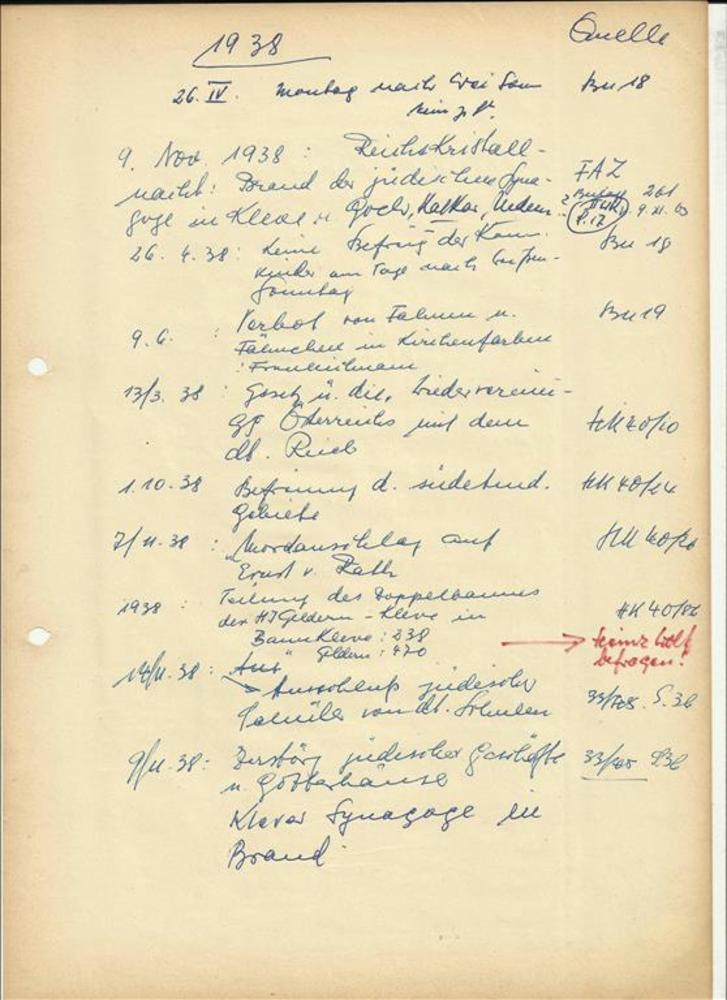 1938 Quelle
26. IV. Montag nach Bn 18
9. Nov. 1938 : Reichskristall-
nacht: Brand der jüdischen Syna- FAZ
goge in Kleve u. Goch, Kalkar, Uedem 261 9. XI.
26. 4. 38: keine der Komm. Bn 18
kinder am Tage nach
sonntag
9. 6. : Verbot von Fahnen u. Bn 19
Fähnchen in Kirchenfarben
: Fronleichnam
13/3. 38 : Gesetz ü. die Wiederverein-
gg Österreichs mit dem HK 40/10
dt. Reich
1. 10. 38 Befreiung d. sudetend. HK 40/24
Gebiete
7/11. 38 : Mordanschlag auf HK 40/26
Ernst v. Rath
1938 : Teilung des Doppelbannes
der HJ Geldern - Kleve in HK 40/82
Bann Kleve : 238 → Heinz
Geldern : 470 befragen!
14/11. 38 : Aus
Ausschluß jüdischer
Schüler von dt. Schulen S. 36
9/11. 38 : Zerstörg jüdischer Geschäfte S. 36
u. Gotteshäuser
Klever Synagoge in
Brand.